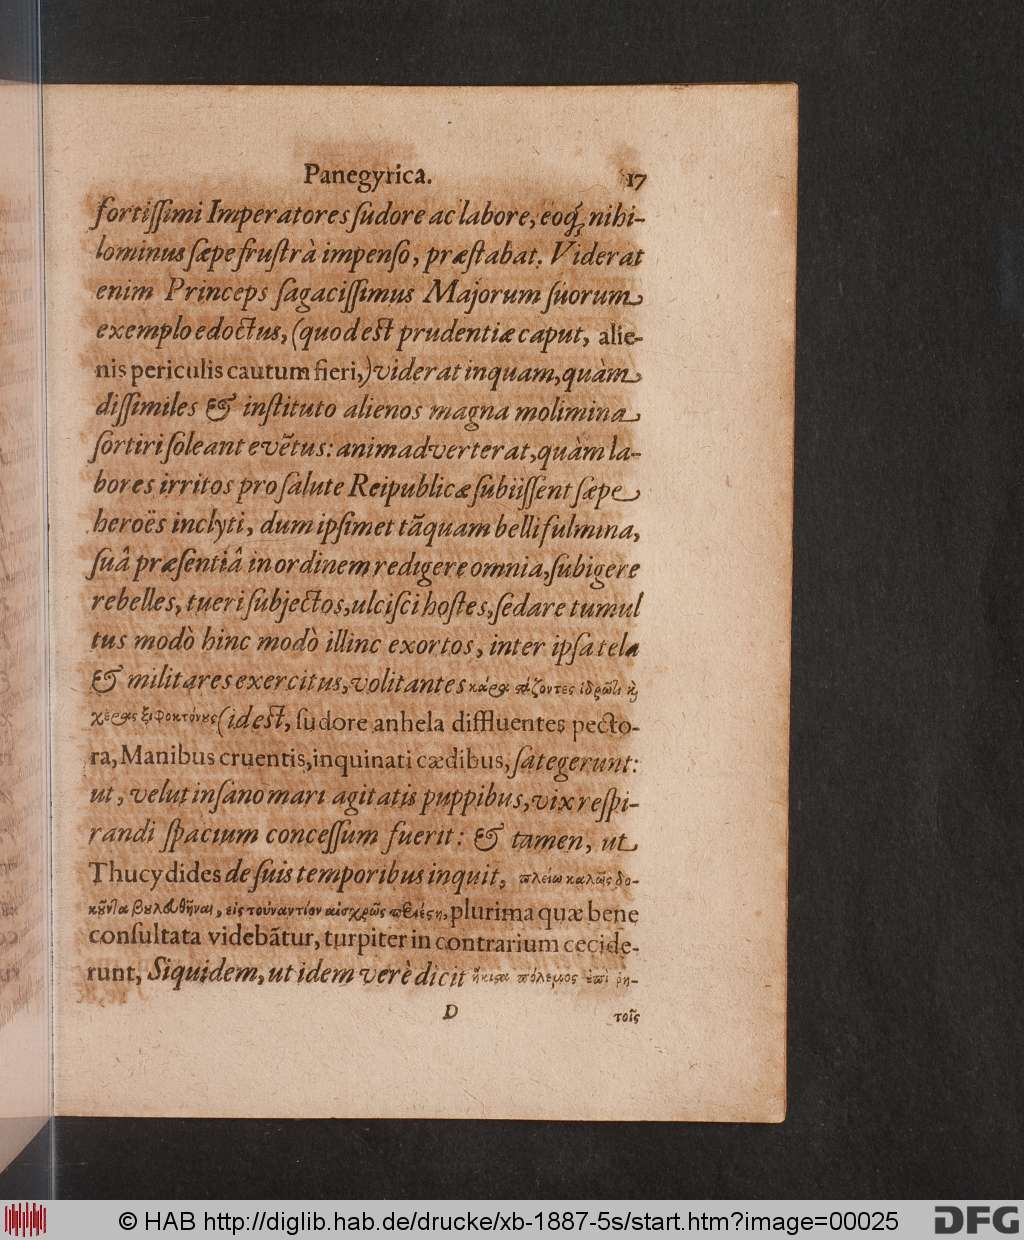 Panegyrica. 17
fortiſſimi Imperatores ſudore ac labore, eoq́; nihi-
lominus ſæpe fruſtrà impenſo, præſtabat. Viderat
enim Princeps ſagaciſſimus Majorum ſuorum
exemplo edoctus, (quod eſt prudentiæ caput, alie-
nis periculis cautum fieri,) viderat inquam, quàm
diſſimiles & inſtituto alienos magna molimina
ſortiri ſoleant evẽtus: animadverterat, quàm la-
bores irritos pro ſalute Reipublicæ ſubiiſſent ſæpe
heroës inclyti, dum ipſimet tãquam belli fulmina,
ſuâ præſentiâ in ordinem redigere omnia, ſubigere
rebelles, tueri ſubjectos, ulciſci hoſtes, ſedare tumul
tus modò hinc modò illinc exortos, inter ipſa tela
& militares exercitus, volitantes κάρα ςάζοντες ἱδρῶτι κὶ
χέρας ξιφοκτόνους (id eſt, ſudore anhela diffluentes pecto-
ra, Manibus cruentis, inquinati cædibus, ſategerunt:
ut, velut inſano mari agitatis puppibus, vix reſpi-
randi ſpacium conceſſum fuerit: & tamen, ut
Thucydides de ſuis temporibus inquit, πλείω καλῶς δο-
κοῦντα βουλευθῆναι, εἰς τοὐναντίον αἰσχρῶς περιέςη, plurima quæ bene
conſultata videbãtur, turpiter in contrarium cecide-
runt, Siquidem, ut idem verè dicit ἥκιςα πόλεμος ἐπὶ ῥη-
D τοῖς
© HAB http://diglib.hab.de/drucke/xb-1887-5s/start.htm?image=00025 DFG